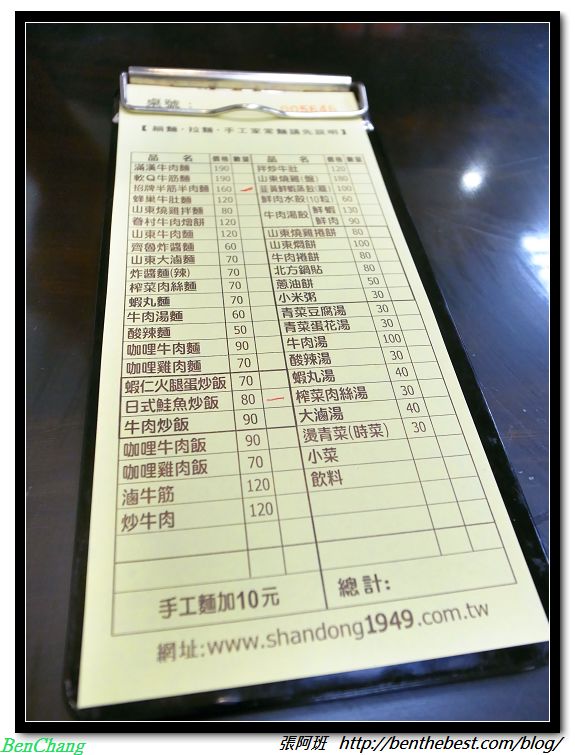 桌號：
【細麵‧拉麵‧手工家常麵請先說明】
品 名 價格 數量 品 名 價格 數量
滿漢牛肉麵 190 拌炒牛肚 120
軟Q牛筋麵 190 山東燒雞(盤) 180
招牌半筋半肉麵 160 韭黃鮮蝦蒸餃(籠) 100
蜂巢牛肚麵 120 鮮肉水餃(10粒) 60
山東燒雞拌麵 80 牛肉湯餃 鮮蝦 130
眷村牛肉燴餅 120 鮮肉 90
山東牛肉麵 120 山東燒雞捲餅 80
齊魯炸醬麵 60 山東燜餅 100
山東大滷麵 70 牛肉捲餅 80
炸醬麵(辣) 70 北方鍋貼 80
榨菜肉絲麵 70 蔥油餅 50
蝦丸麵 70 小米粥 30
牛肉湯麵 60 青菜豆腐湯 30
酸辣麵 50 青菜蛋花湯 30
咖哩牛肉麵 90 牛肉湯 100
咖哩雞肉麵 70 酸辣湯 30
蝦仁火腿蛋炒飯 70 蝦丸湯 40
日式鮭魚炒飯 80 榨菜肉絲湯 30
牛肉炒飯 90 大滷湯 40
咖哩牛肉飯 90 燙青菜(時菜) 30
咖哩雞肉飯 70 小菜
滷牛筋 120 飲料
炒牛肉 120
手工麵加10元 總計:
網址:www.shandong1949.com.tw
BenChang 張阿班 http://benthebest.com/blog/